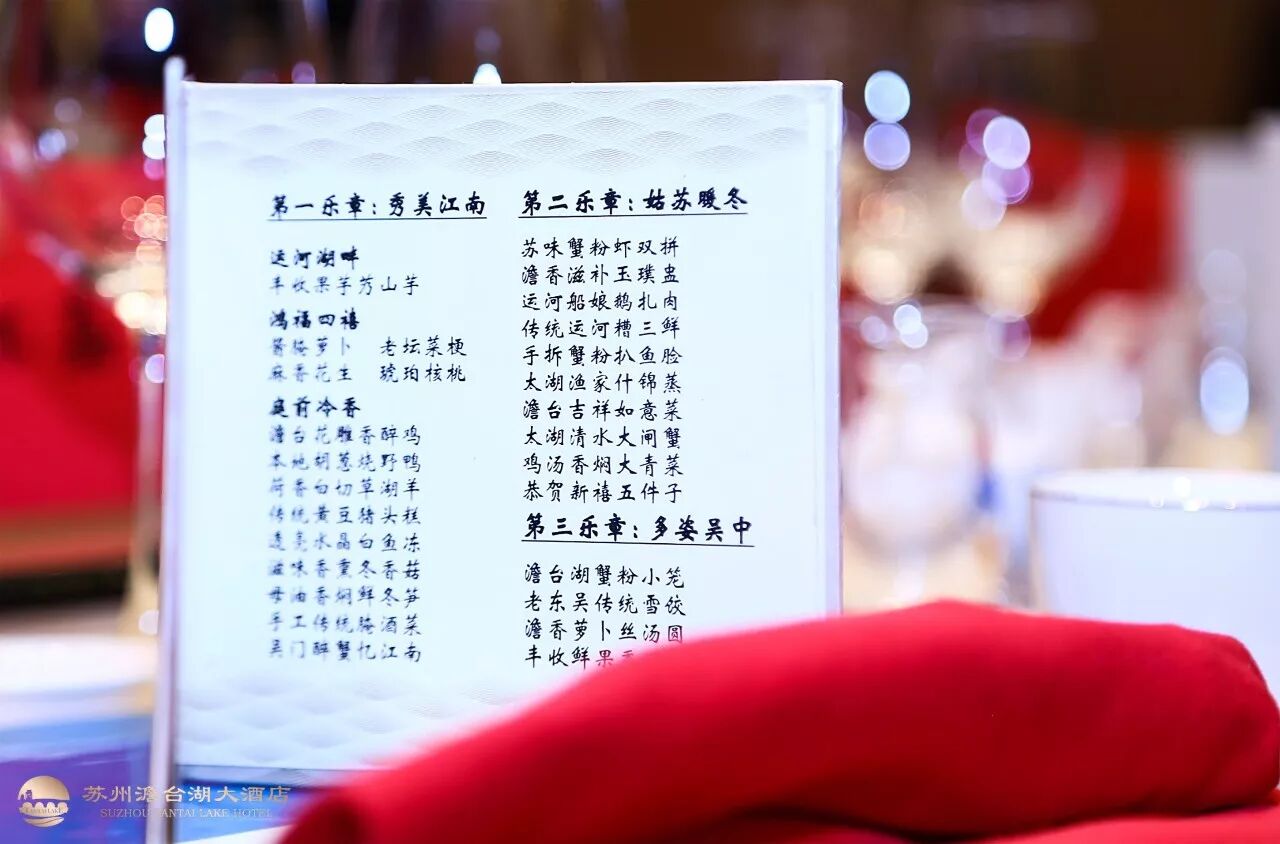 第一乐章：秀美江南
运河湖畔
丰收果芋艿山芋
鸿福四禧
酱腌萝卜 老坛菜梗
麻香花生 琥珀核桃
庭前冷香
澹台花雕香醉鸡
本地胡葱烧野鸭
荷香白切草湖羊
传统黄豆猪头糕
透亮水晶白鱼冻
滋味香熏冬香菇
母油香焖鲜冬笋
手工传统腌酒菜
吴门醉蟹忆江南
第二乐章：姑苏暖冬
苏味蟹粉虾双拼
澹香滋补玉璞盅
运河船娘鹅扎肉
传统运河糟三鲜
手拆蟹粉扒鱼脸
太湖渔家什锦蒸
澹台吉祥如意菜
太湖清水大闸蟹
鸡汤香焖大青菜
恭贺新禧五件子
第三乐章：多姿吴中
澹台湖蟹粉小笼
老东吴传统雪饺
澹香萝卜丝汤圆
丰收鲜果
苏州澹台湖大酒店
SUZHOU TANTAI LAKE HOTEL